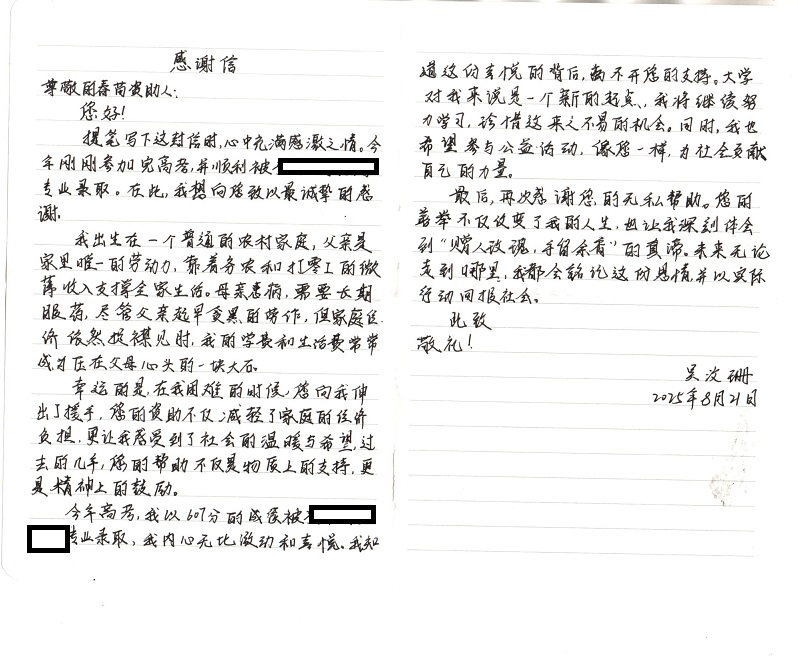 感谢信
尊敬的春苗资助人：
您好！
提笔写下这封信时，心中充满感激之情。今
年刚刚参加完高考，并顺利被
专业录取。在此，我想向您致以最诚挚的感
谢。
我出生在一个普通的农村家庭，父亲是
家里唯一的劳动力，靠着务农和打零工的微
薄收入支撑全家生活。母亲患病，需要长期
服药，尽管父亲起早贪黑的劳作，但家庭经
济依然捉襟见肘，我的学费和生活费常常
成为压在父母心头的一块大石。
幸运的是，在我困难的时候，您向我伸
出了援手，您的资助不仅减轻了家庭的经济
负担，更让我感受到了社会的温暖与希望，过
去的几年，您的帮助不仅是物质上的支持，更
是精神上的鼓励。
今年高考，我以607分的成绩被
专业录取，我内心无比激动和喜悦。我知
道这份喜悦的背后，离不开您的支持。大学
对我来说是一个新的起点，我将继续努
力学习，珍惜这来之不易的机会。同时，我也
希望参与公益活动，像您一样，为社会贡献
自己的力量。
最后，再次感谢您的无私帮助。您的
善举不仅改变了我的人生，也让我深刻体会
到“赠人玫瑰，手留余香”的真谛。未来无论
走到哪里，我都会铭记这份恩情，并以实际
行动回报社会。
此致
敬礼！
吴汶珊
2025年8月21日